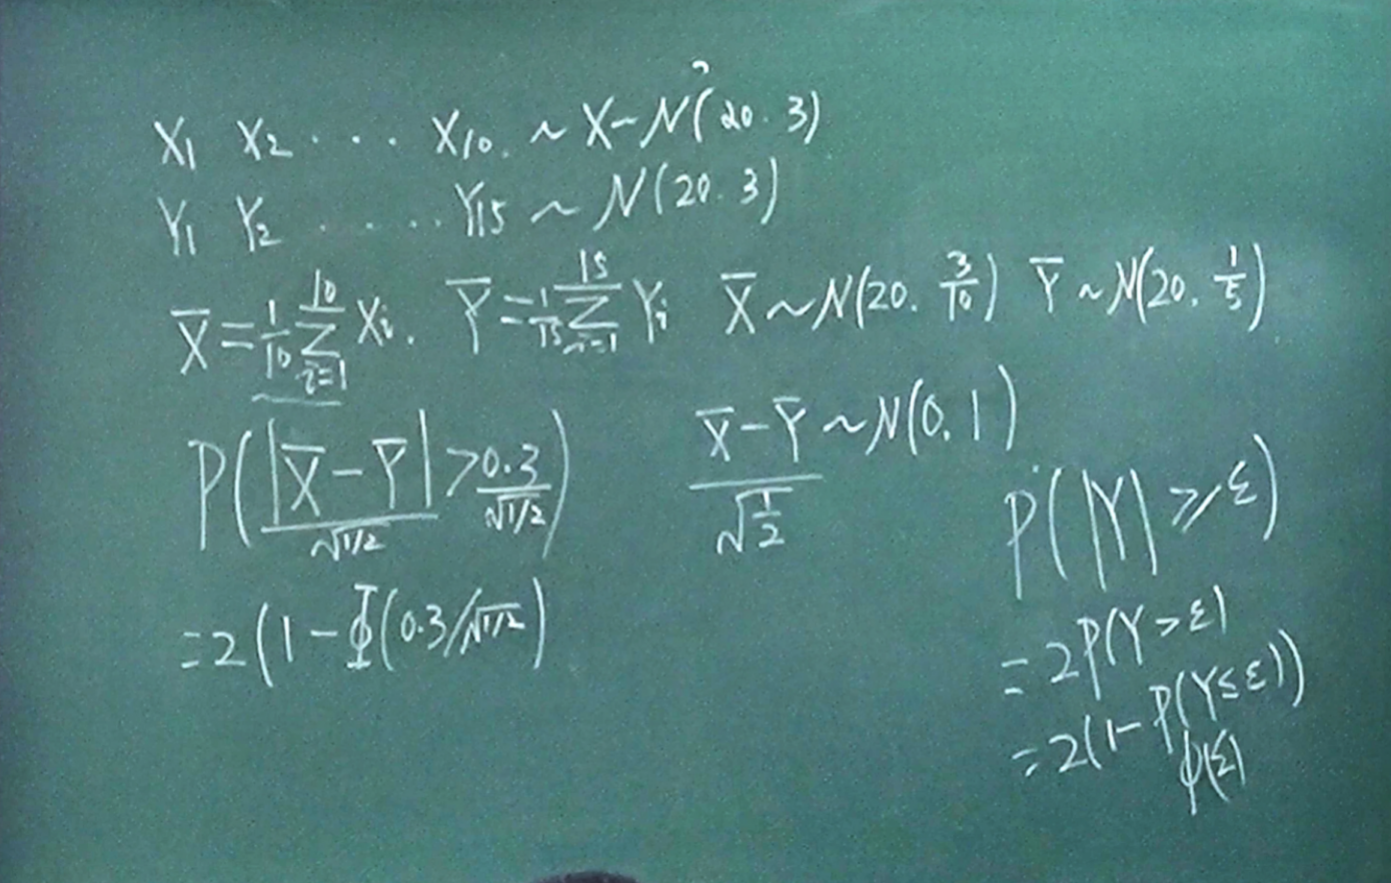 X₁ X₂ · · · X₁₀. ~ X~N(20. 3)
Y₁ Y₂ ····· Y₁₅ ~ N(20. 3)
X̄ = 1/10 Σ_{i=1}^{10} Xᵢ. Ȳ = 1/15 Σ_{i=1}^{15} Yᵢ X̄ ~ N(20. 3/10) Ȳ ~ N(20. 1/5)
P( |X̄ - Ȳ| / √1/2 > 0.3 / √1/2 )
= 2(1 - Φ(0.3/√1/2)
(X̄ - Ȳ) / √(1/2) ~ N(0. 1)
P(|Y| ≥ ε)
= 2P(Y > ε)
= 2(1 - P(Y ≤ ε))
φ(ε)